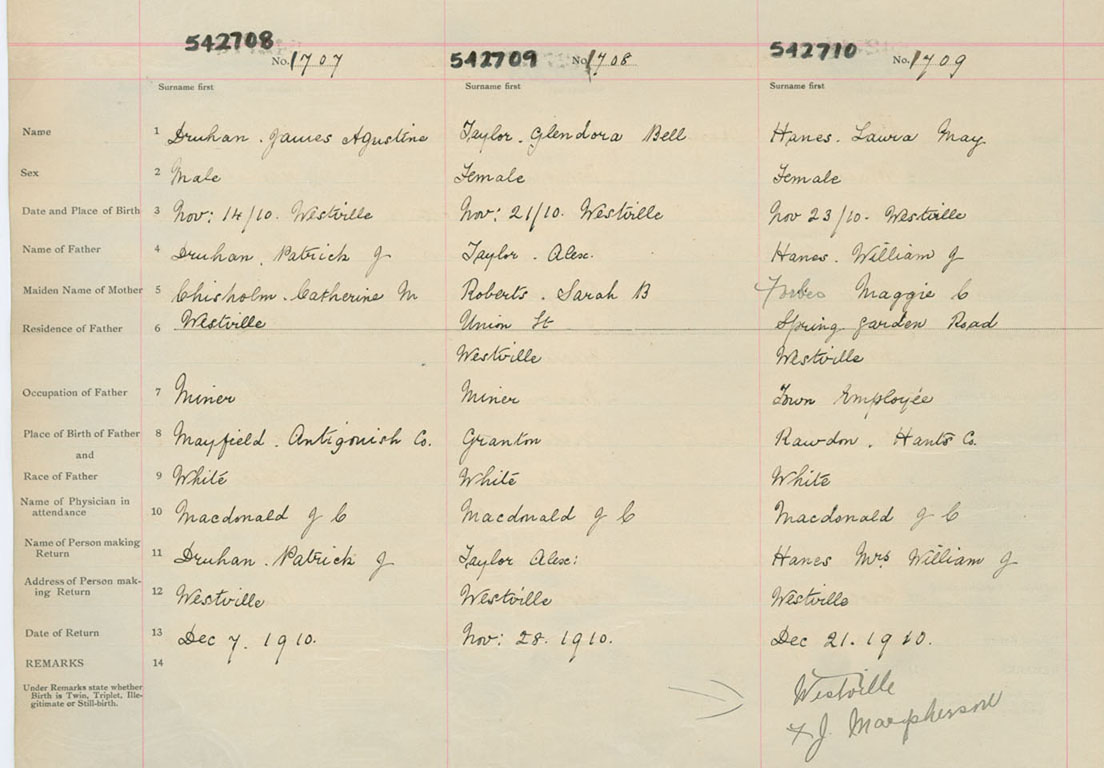 542708 No. 1707 542709 No 1708 542710 No. 1709
Surname first Surname first Surname first
Name 1 Druhan. James Agustine Taylor. Glendora Bell Hanes. Laura May
Sex 2 Male Female Female
Date and Place of Birth 3 Nov: 14/10. Westville Nov: 21/10. Westville Nov 23/10. Westville
Name of Father 4 Druhan. Patrick J Taylor. Alex. Hanes. William J
Maiden Name of Mother 5 Chisholm. Catherine M Roberts. Sarah B Forbes Maggie C
Residence of Father 6 Westville Union St Spring garden Road
Westville Westville
Occupation of Father 7 Miner Miner Town Employée
Place of Birth of Father 8 Mayfield. Antigonish Co. Granton Rawdon. Hants Co.
and
Race of Father 9 White White White
Name of Physician in
attendance 10 Macdonald J C Macdonald J C Macdonald J C
Name of Person making
Return 11 Druhan. Patrick J Taylor Alex: Hanes Mrs William J
Address of Person mak-
ing Return 12 Westville Westville Westville
Date of Return 13 Dec 7. 1910. Nov: 28. 1910. Dec 21. 1910.
REMARKS 14
Under Remarks state whether
Birth is Twin, Triplet, Ille-
gitimate or Still-birth.
Westville
J. Macpherson